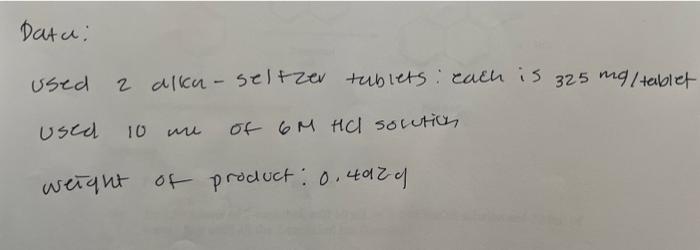 Data:
used 2 alka-seltzer tablets: each is 325 mg/tablet
used 10 mL of 6M HCl solution
weight of product: 0.492g